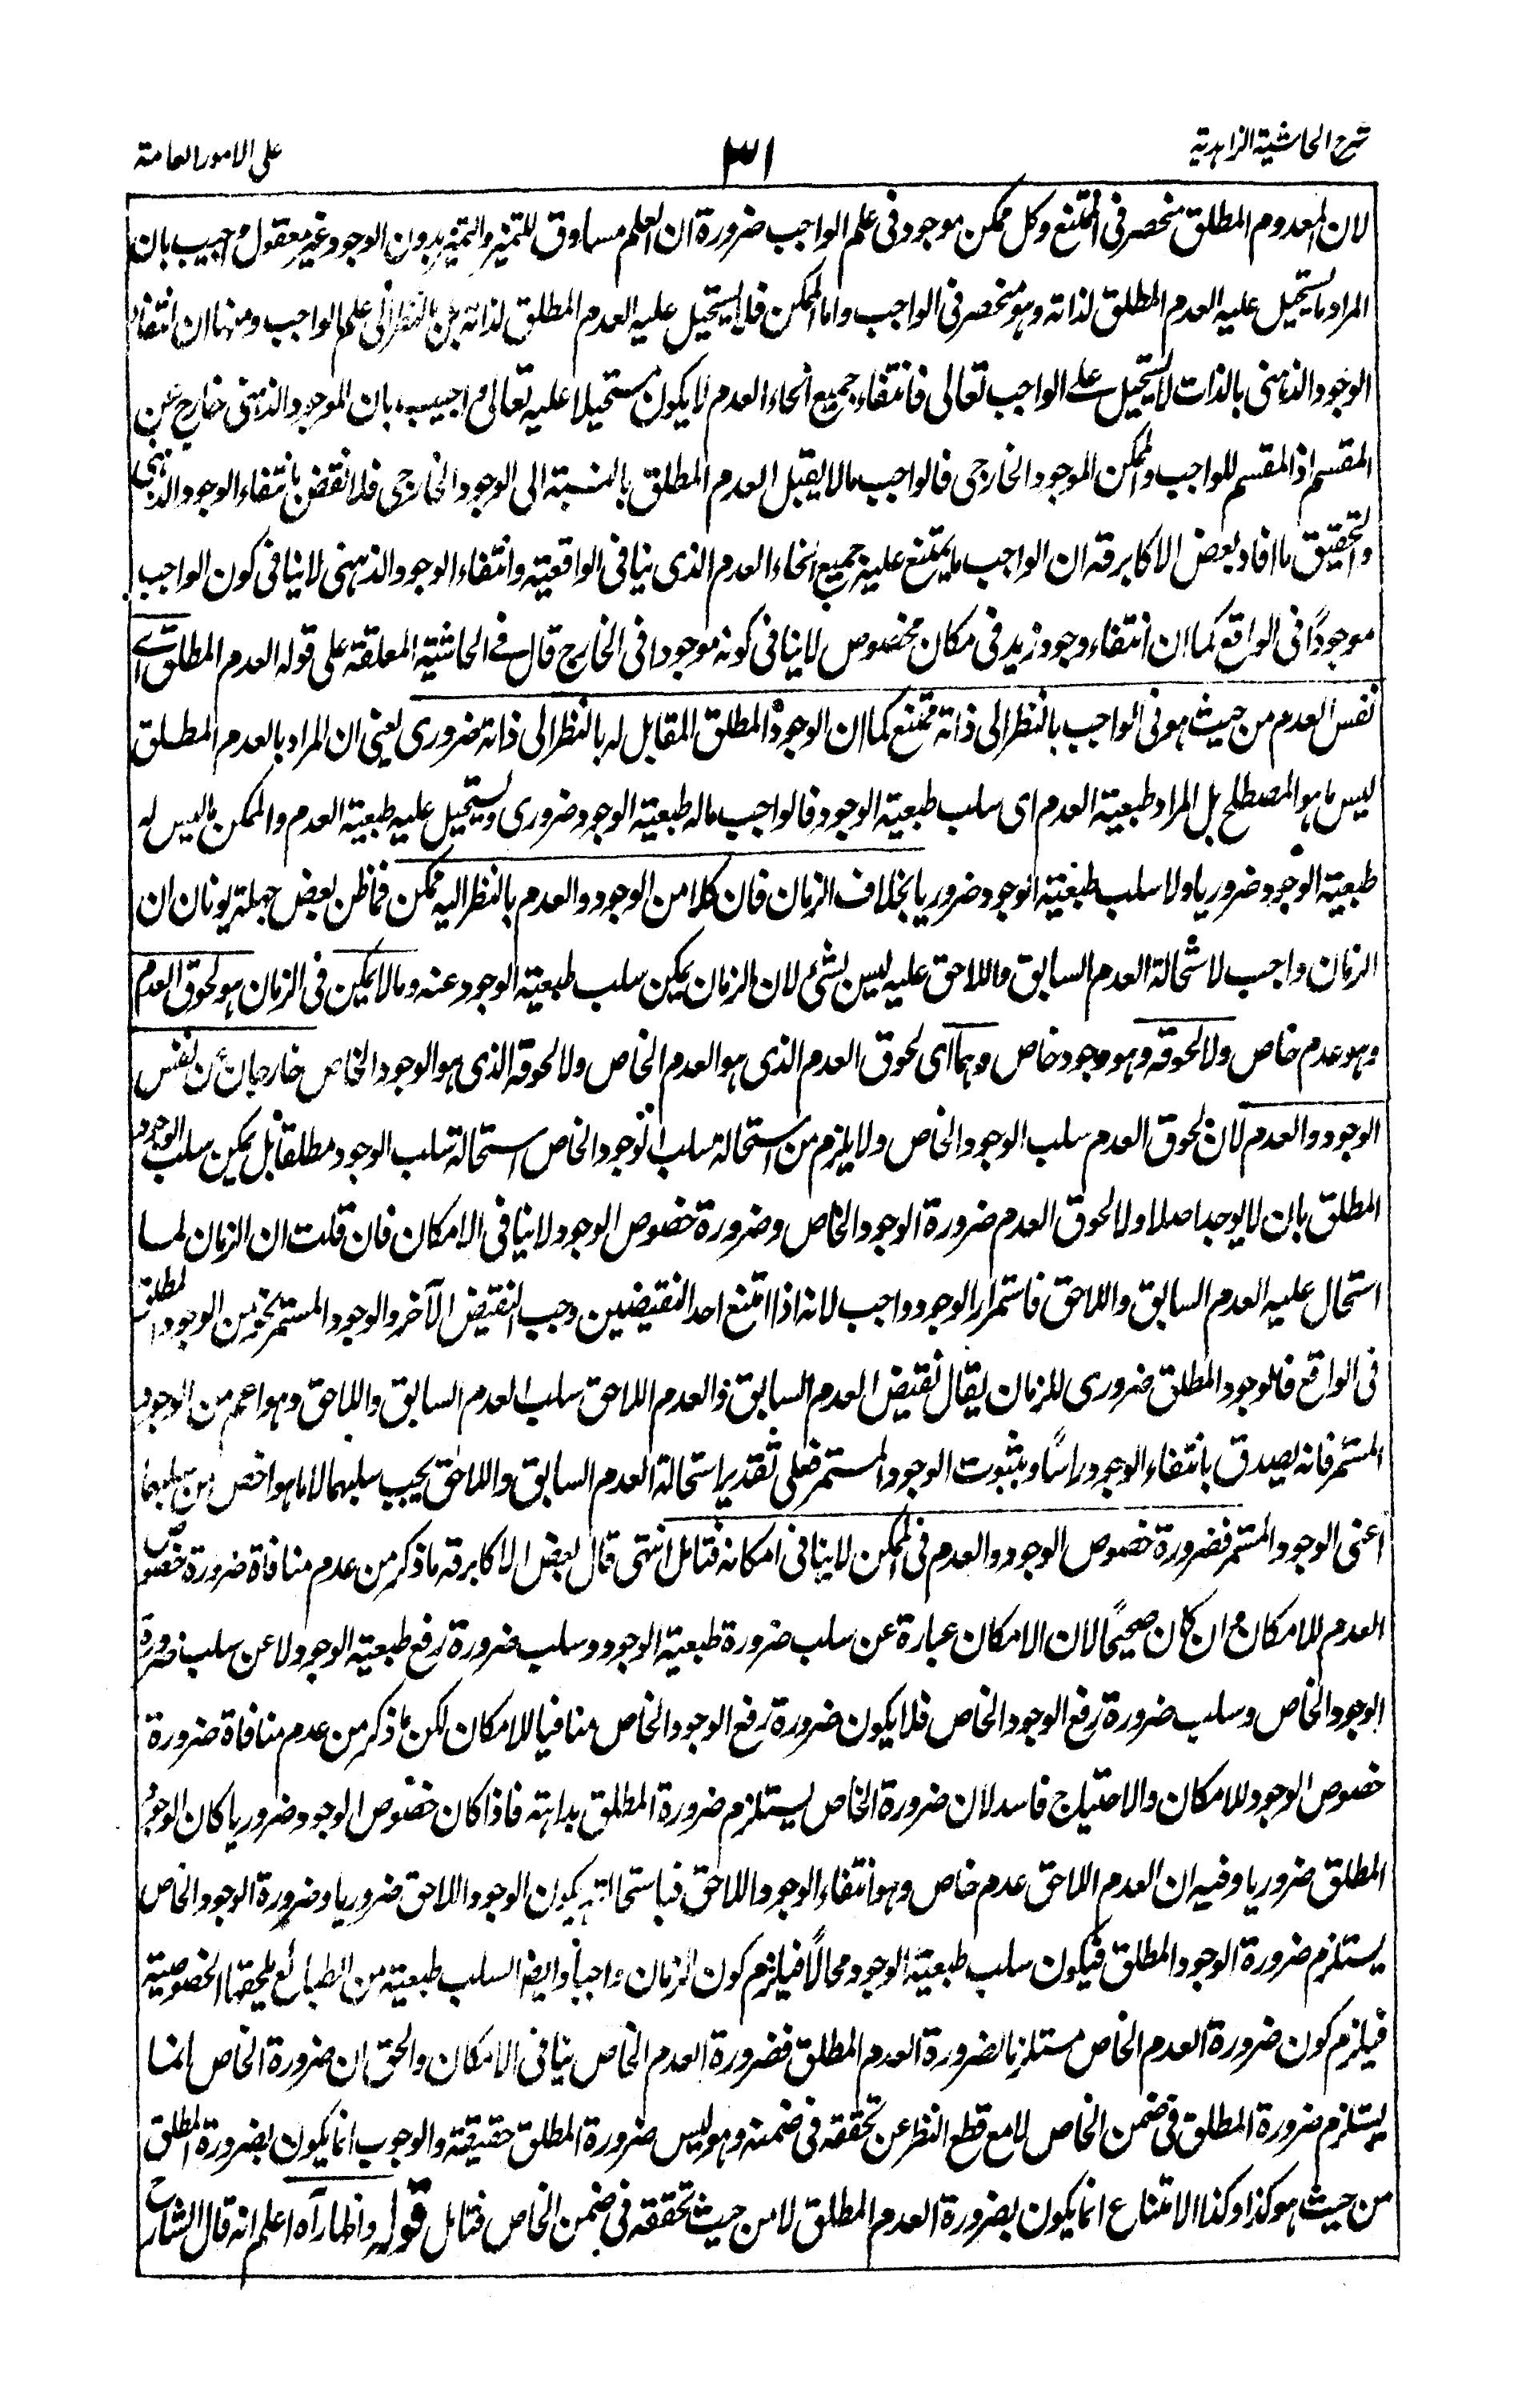 شرح الحاشية الزاهدية
٣١
على الامور العامة
لان المعدوم المطلق منحصر فى الممتنع وكل ممكن موجود فى علم الواجب ضرورة ان العلم مساوق للتميز والتميز بدون الوجود غير معقول واجيب بان
المراد ما يستحيل عليه العدم المطلق لذاته وهو منحصر فى الواجب واما الممكن فلا يستحيل عليه العدم المطلق لذاته بل بالنظر الى علم الواجب ومنها ان انتفاء
الوجود الذهنى بالذات لا يستحيل على الواجب تعالى فانتفاء جميع انحاء العدم لا يكون مستحيلا عليه تعالى واجيب بان الموجود الذهنى خارج عن
المقسم اذ المقسم للواجب والممكن الموجود الخارجى فالواجب ما لا يقبل العدم المطلق بالنسبة الى الوجود الخارجى فلا نقض بانتفاء الوجود الذهنى
والتحقيق ما افاد بعض الاكابر قه ان الواجب ما يمتنع عليه جميع انحاء العدم الذى ينافى الواقعية وانتفاء الوجود الذهنى لا ينافى كون الواجب
موجودًا فى الواقع كما ان انتفاء وجود زيد فى مكان مخصوص لا ينافى كونه موجودا فى الخارج قال فى الحاشية المعلقة على قوله العدم المطلق اى
نفس العدم من حيث هو فى الواجب بالنظر الى ذاته ممتنع كما ان الوجود المطلق المقابل له بالنظر الى ذاته ضرورى يعنى ان المراد بالعدم المطلق
ليس ما هو المصطلح بل المراد طبعية العدم اى سلب طبعية الوجود فالواجب ما له طبعية الوجود ضرورى ويستحيل عليه طبعية العدم والممكن ما ليس له
طبعية الوجود ضروريا ولا سلب طبعية الوجود ضروريا بخلاف الزمان فان كلا من الوجود والعدم بالنظر اليه ممكن فما ظن بعض جهلة يونان ان
الزمان واجب لاستحالة العدم السابق واللاحق عليه ليس بشئ لان الزمان يمكن سلب طبعية الوجود عنه وما لا يمكن فى الزمان هو لحوق العدم
وهو عدم خاص ولا لحوقه وهو وجود خاص وهما اى لحوق العدم الذى هو العدم الخاص ولا لحوقه الذى هو الوجود الخاص خارجان عن نفس
الوجود والعدم لان لحوق العدم سلب الوجود الخاص ولا يلزم من استحالة سلب الوجود الخاص استحالة سلب الوجود مطلقا بل يمكن سلب الوجود
المطلق بان لا يوجد اصلا ولا لحوق العدم ضرورة الوجود الخاص وضرورة خصوص الوجود لا ينافى الامكان فان قلت ان الزمان لما
استحال عليه العدم السابق واللاحق فاستمرار الوجود واجب لانه اذا امتنع احد النقيضين وجب النقيض الآخر والوجود المستمر نحو من الوجود المطلق
فى الواقع فالوجود المطلق ضرورى للزمان يقال نقيض العدم السابق والعدم اللاحق سلب العدم السابق واللاحق وهو اعم من الوجود
المستمر فانه يصدق بانتفاء الوجود راسًا وبثبوت الوجود المستمر فعلى تقدير استحالة العدم السابق واللاحق يجب سلبهما لا ما هو اخص من سلبهما
اعنى الوجود المستمر فضرورة خصوص الوجود والعدم فى الممكن لا ينافى امكانه فتامل انتهى قال بعض الاكابر قه ما ذكر من عدم منافاة ضرورة خصوص
العدم للامكان وان كان صحيحًا لان الامكان عبارة عن سلب ضرورة طبعية الوجود وسلب ضرورة رفع طبعية الوجود لا عن سلب ضرورة
الوجود الخاص وسلب ضرورة رفع الوجود الخاص فلا يكون ضرورة رفع الوجود الخاص منافيا للامكان لكن ما ذكر من عدم منافاة ضرورة
خصوص الوجود للامكان والاحتياج فاسد لان ضرورة الخاص يستلزم ضرورة المطلق بداهته فاذا كان خصوص الوجود ضروريا كان الوجود
المطلق ضروريا وفيه ان العدم اللاحق عدم خاص وهو انتفاء الوجود اللاحق فباستحالته يكون الوجود اللاحق ضروريا وضرورة الوجود الخاص
يستلزم ضرورة الوجود المطلق فيكون سلب طبعية الوجود محالًا فيلزم كون الزمان واجبا وايضا السلب طبعية من الطبائع يلحقها الخصوصية
فيلزم كون ضرورة العدم الخاص مستلزما لضرورة العدم المطلق فضرورة العدم الخاص ينافى الامكان والحق ان ضرورة الخاص انما
يستلزم ضرورة المطلق فى ضمن الخاص لا مع قطع النظر عن تحققه فى ضمنه وهو ليس ضرورة المطلق حقيقة والوجوب انما يكون بضرورة المطلق
من حيث هو كذا وكذا الامتناع انما يكون بضرورة العدم المطلق لا من حيث تحققه فى ضمن الخاص فتامل قوله واظهار آه اعلم انه قال الشارح